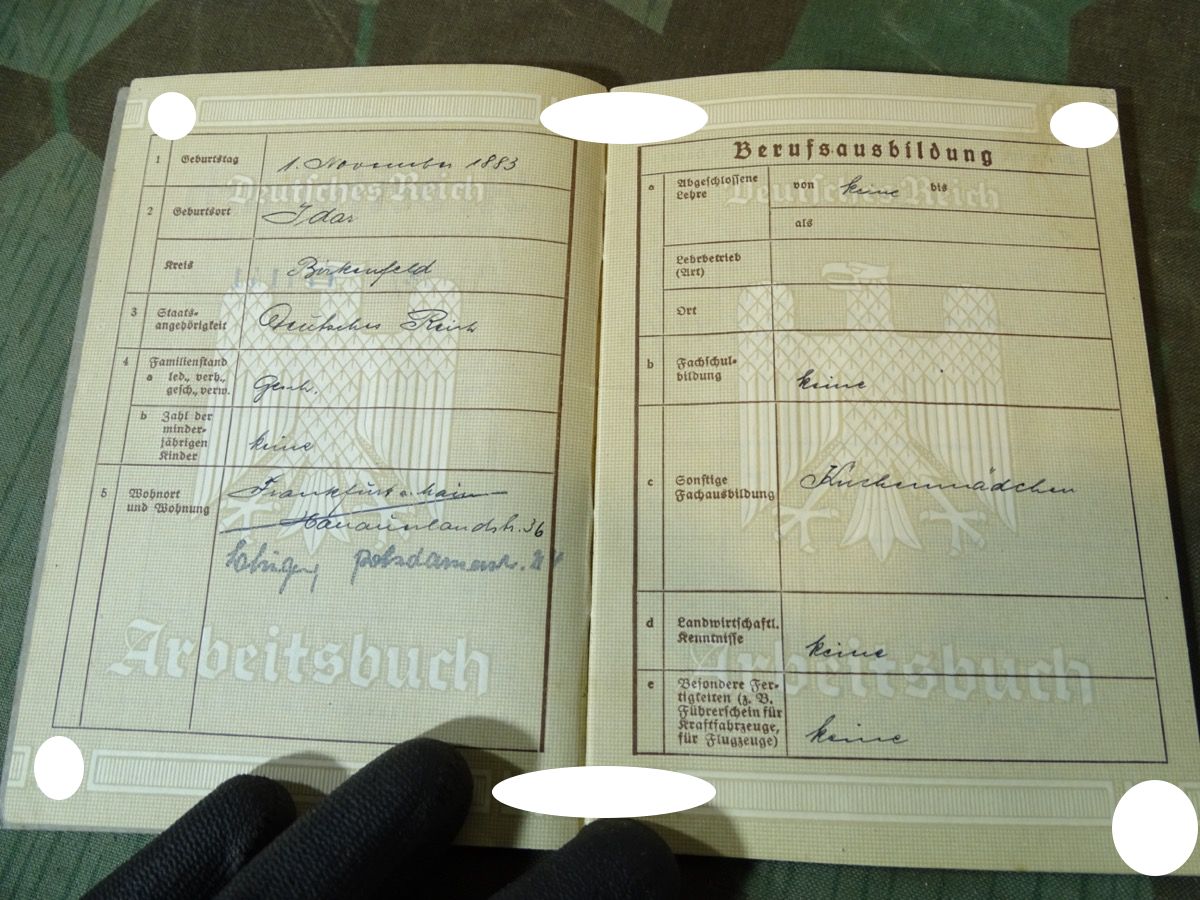 1 Geburtstag 1. November 1883
Deutsches Reich
2 Geburtsort Idar
Kreis Birkenfeld
3 Staats-
angehörigkeit Deutsches Reich
4 Familienstand
a led., verh.,
gesch., verw. Gesch.
b Zahl der
minder-
jährigen
Kinder keine
5 Wohnort
und Wohnung Frankfurt a. Main
Hanauerlandstr. 36
Potsdamerstr.
Arbeitsbuch
Berufsausbildung
a Abgeschlossene
Lehre von keine bis
Deutsches Reich
als
Lehrbetrieb
(Art)
Ort
b Fachschul-
bildung keine
c Sonstige
Fachausbildung Küchenmädchen
d Landwirtschaftl.
Kenntnisse keine
Arbeitsbuch
e Besondere Fer-
tigkeiten (z. B.
Führerschein für
Kraftfahrzeuge,
für Flugzeuge) keine